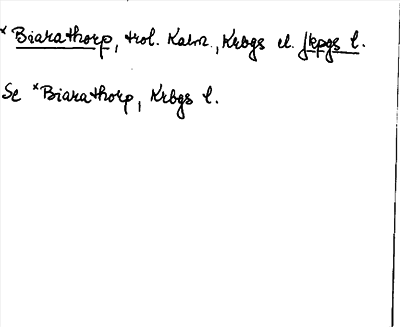 *Biarathorp, trol. Kalm., Krbgs el. Jkpgs l.
Se *Biarathorp, Krbgs l.